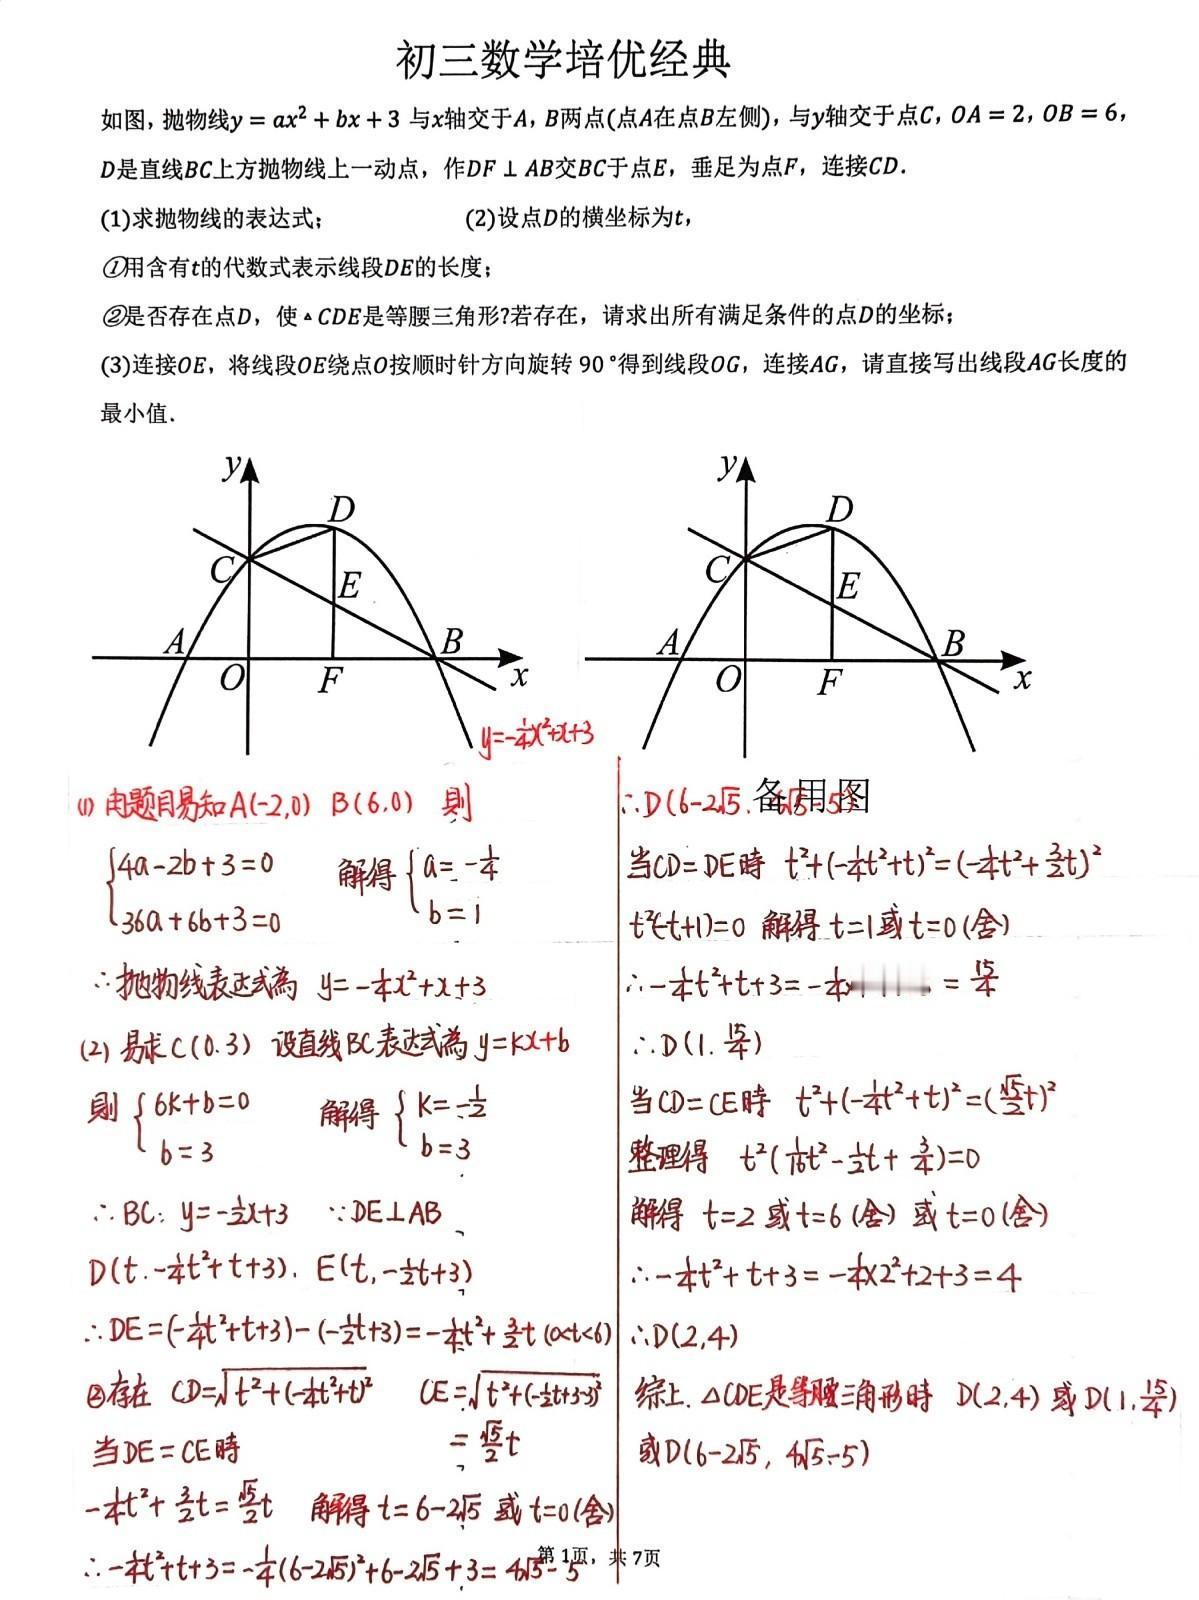 初三数学培优经典
如图，抛物线y = ax² + bx + 3 与x轴交于A，B两点(点A在点B左侧)，与y轴交于点C，OA = 2，OB = 6，
D是直线BC上方抛物线上一动点，作DF ⊥ AB交BC于点E，垂足为点F，连接CD．
(1)求抛物线的表达式； (2)设点D的横坐标为t，
①用含有t的代数式表示线段DE的长度；
②是否存在点D，使▲CDE是等腰三角形?若存在，请求出所有满足条件的点D的坐标；
(3)连接OE，将线段OE绕点O按顺时针方向旋转 90 °得到线段OG，连接AG，请直接写出线段AG长度的
最小值．
y
D
C
E
A
B
O
F
x
y=-1/4x²+x+3
y
D
C
E
A
B
O
F
x
备用图
(1) 由题目易知A(-2,0) B(6,0) 則
{4a-2b+3=0
36a+6b+3=0
解得{a=-1/4
b=1
∴抛物线表达式為 y=-1/4x²+x+3
(2) 易求C(0.3) 设直线BC表达式為y=kx+b
則{6k+b=0
b=3
解得{k=-1/2
b=3
∴BC: y=-1/2x+3 ∵DE⊥AB
D(t.-1/4t²+t+3). E(t,-1/2t+3)
∴DE=(-1/4t²+t+3)-(-1/2t+3)=-1/4t²+3/2t (0<t<6)
②存在 CD=√t²+(-1/4t²+t)² CE=√t²+(-1/2t+3-3)²
当DE=CE時 =√5/2t
-1/4t²+3/2t=√5/2t 解得t=6-2√5 或t=0(舍)
∴-1/4t²+t+3=-1/4(6-2√5)²+6-2√5+3=4√5-5
∴D(6-2√5. 4√5-5)
当CD=DE時 t²+(-1/4t²+t)²=(-1/4t²+3/2t)²
t²(-t+1)=0 解得t=1或t=0(舍)
∴-1/4t²+t+3=-1/4× =15/4
∴D(1.15/4)
当CD=CE時 t²+(-1/4t²+t)²=(√5/2t)²
整理得 t²(1/16t²-1/2t+3/4)=0
解得 t=2 或t=6(舍) 或t=0(舍)
∴-1/4t²+t+3=-1/4×2²+2+3=4
∴D(2,4)
综上.△CDE是等腰三角形時 D(2,4) 或D(1,15/4)
或D(6-2√5, 4√5-5)
第 1页，共 7页